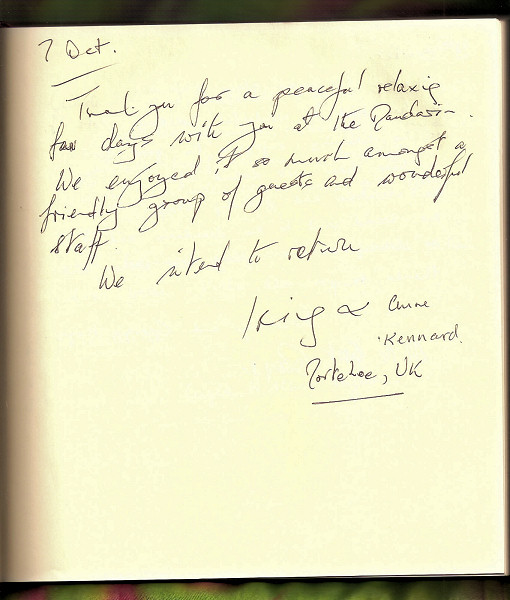 7 Oct.
Thank you for a peaceful relaxing
few days with you at the Mandarin.
We enjoyed it so much amongst a
friendly group of guests and wonderful
staff.
We intend to return
& Anne
Kennard.
Mortehoe, UK